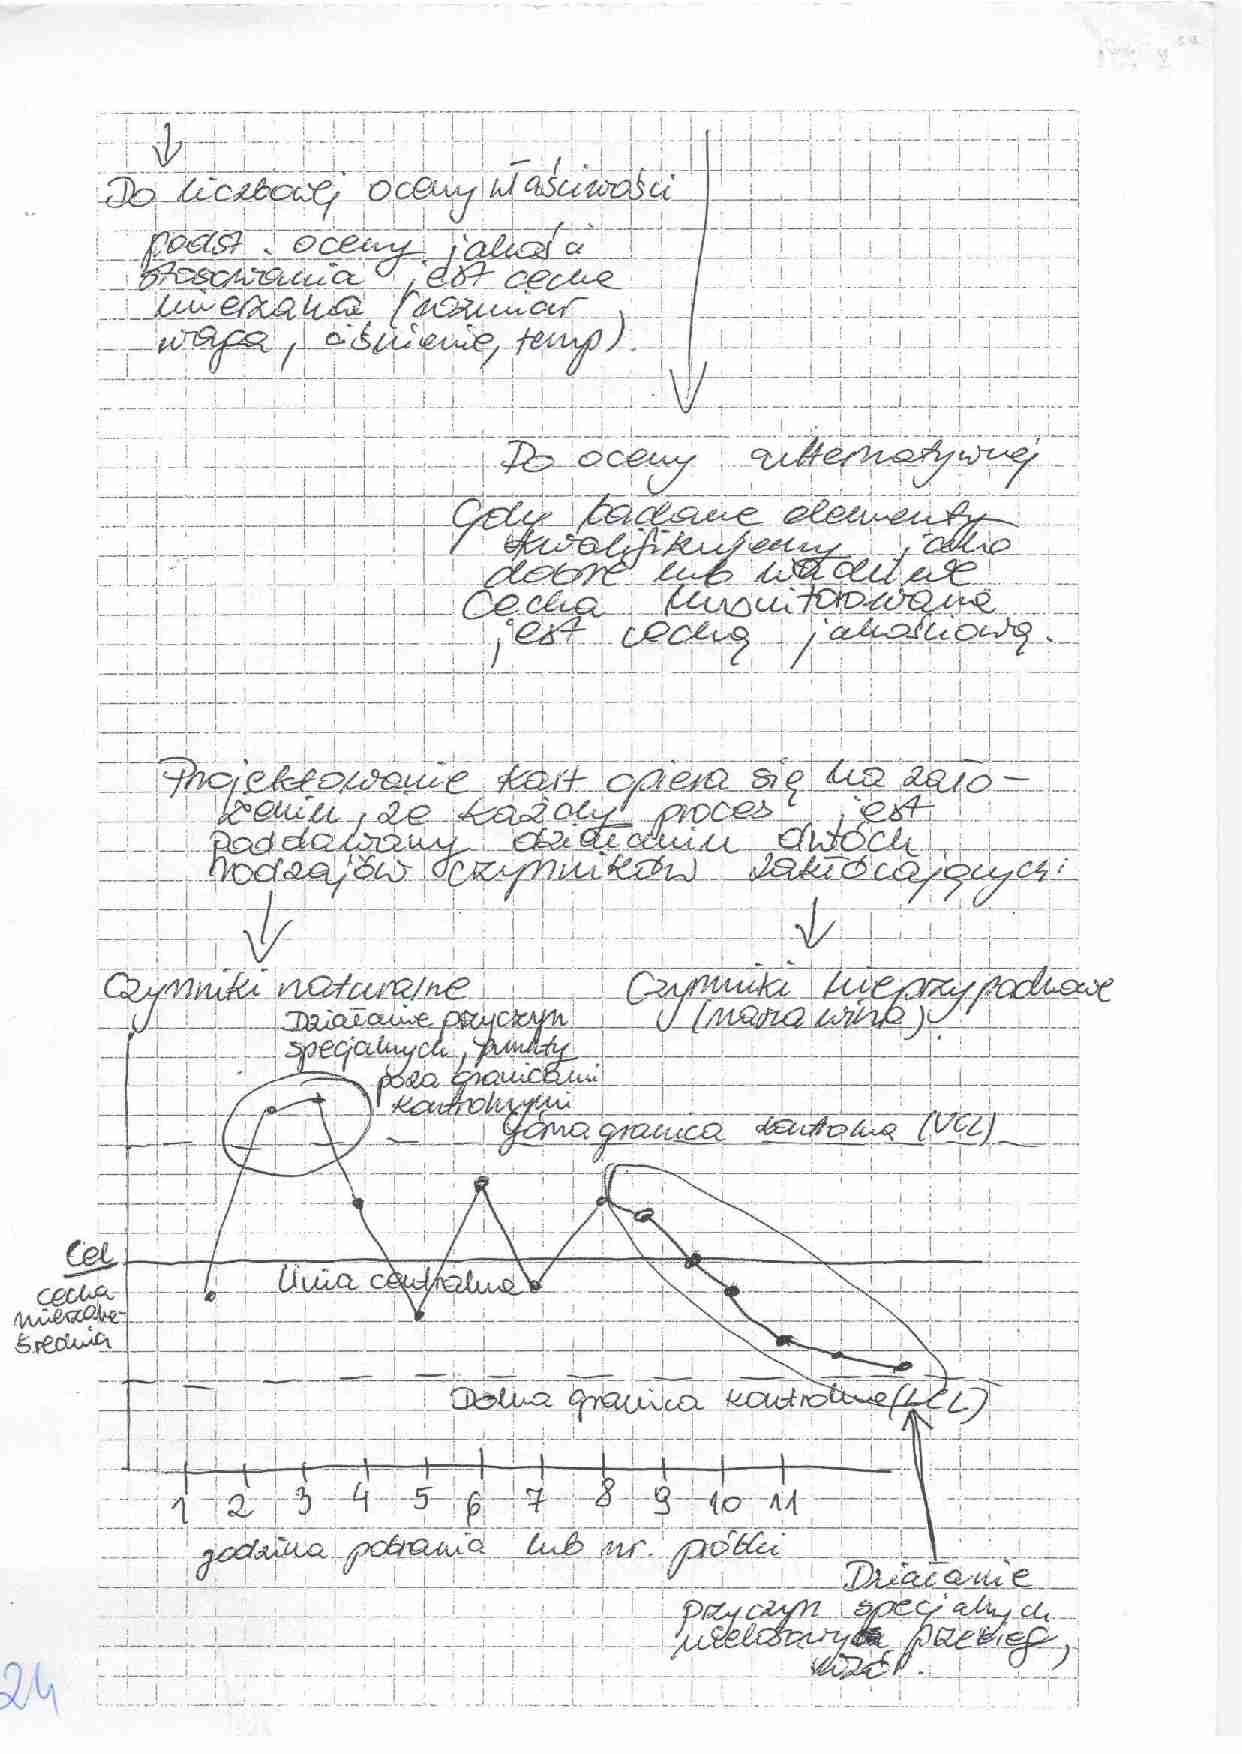 Do liczbowej oceny właściwości
podst. oceny jakości
stosowania jest cecha
mierzalna (rozmiar,
waga, ciśnienie, temp).
Do oceny alternatywnej
Gdy badane elementy
kwalifikujemy jako
dobre lub wadliwe
Cecha monitorowana
jest cechą jakościową.
Projektowanie kart opiera się na zało-
żeniu, że każdy proces jest
poddawany działaniu dwóch
rodzajów czynników zakłócających:
Czynniki naturalne
Czynniki nieprzypadkowe
(nasza wina).
Działanie przyczyn
specjalnych, punkty
poza granicami
kontrolnymi
Górna granica kontrolna (UCL)
Cel
Linia centralna
cecha
mierzalna-
średnia
Dolna granica kontrolna (LCL)
1 2 3 4 5 6 7 8 9 10 11
godzina pobrania lub nr. próbki
Działanie
przyczyn specjalnych
nielosowy przebieg,
wzór.
24